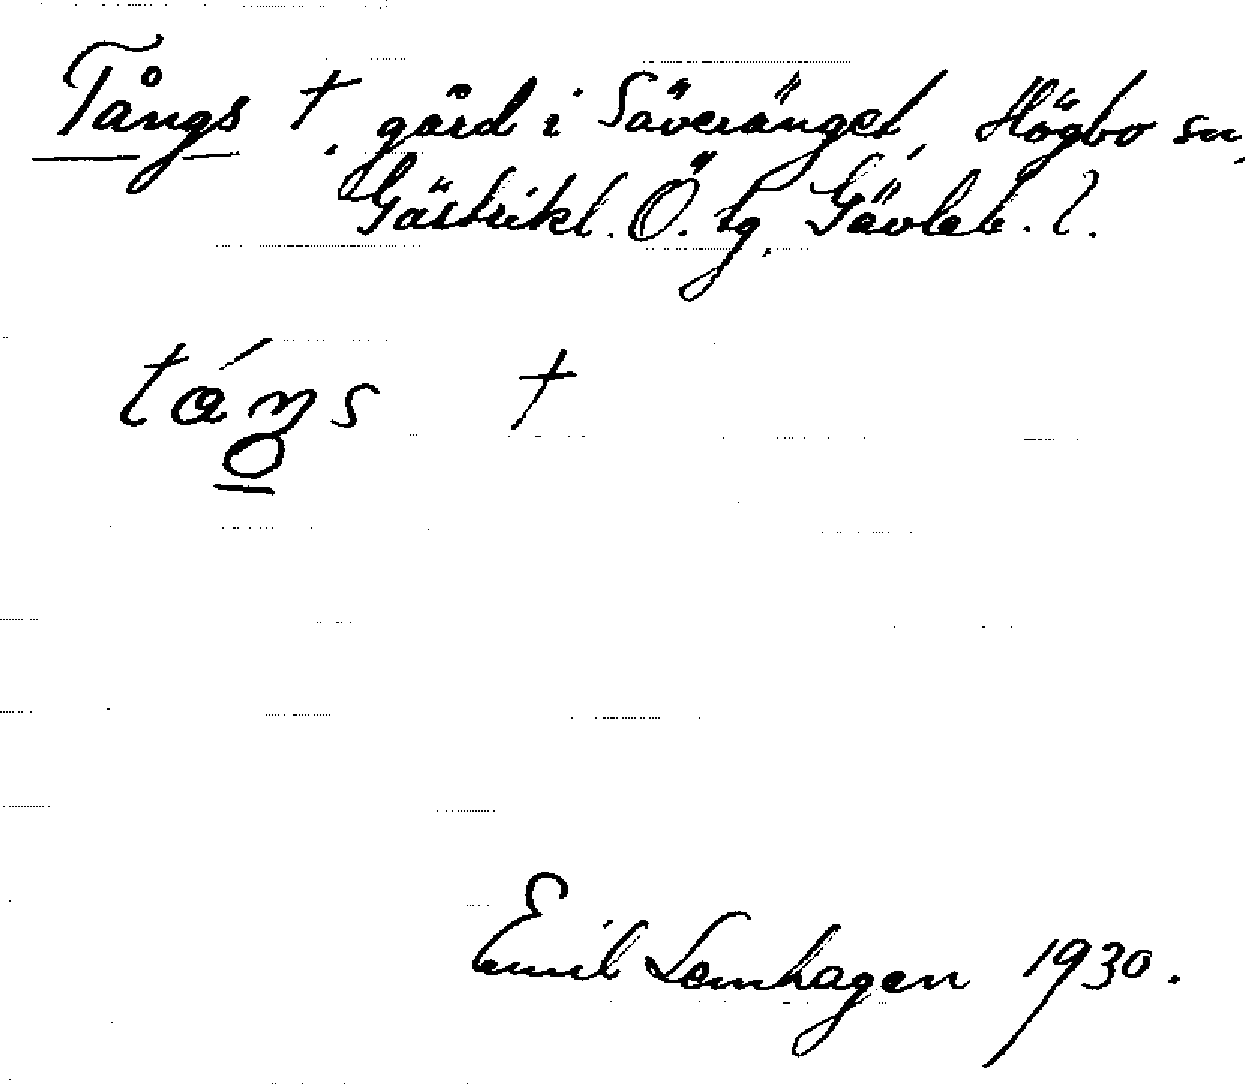 Tångs †, gård i Säveränget, Högbo sn,
Gästrikl. Ö. tg, Gävleb. l.
táŋs †
Emil Lemhagen 1930.